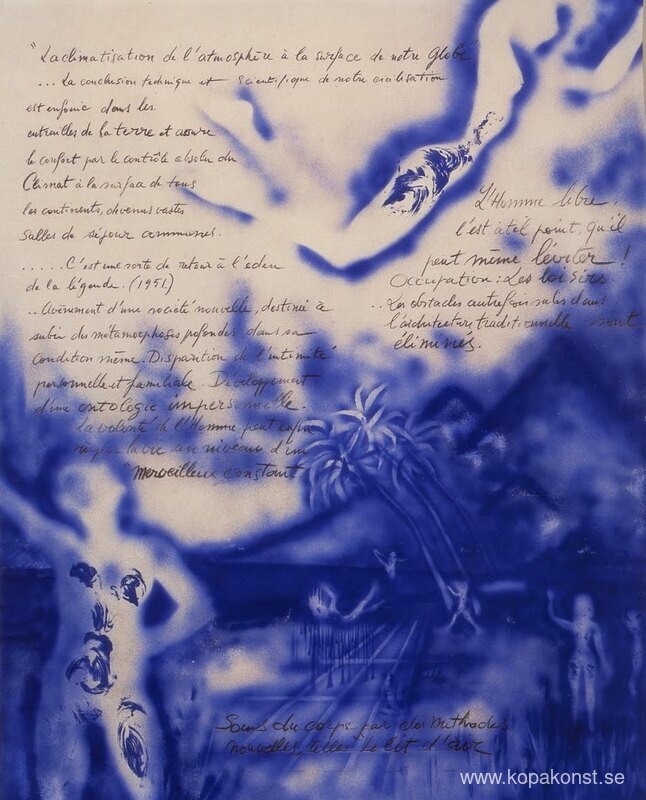 "La climatisation de l'atmosphère à la surface de notre Globe
... La conclusion technique et scientifique de notre civilisation
est enfouie dans les
entrailles de la terre et assure
le confort par le contrôle absolu du
Climat à la surface de tous
les continents, devenus vastes
Salles de séjour communes.
..... C'est une sorte de retour à l'eden
de la légende. (1951)
.. Avènement d'une société nouvelle, destinée à
subir des métamorphoses profondes dans sa
condition même. Disparition de l'intimité
personnelle et familiale. Développement
d'une ontologie impersonnelle.
La volonté de l'Homme peut enfin
la vie au niveau d'un
"Merveilleux constant
L'Homme libre,
l'est à tel point, qu'il
peut même léviter !
Occupation : Les loisirs
.. Les obstacles autrefois subis dans
l'architecture traditionnelle sont
éliminés.
Soins du corps par des méthodes
nouvelles, telles le lit d'air
www.kopakonst.se